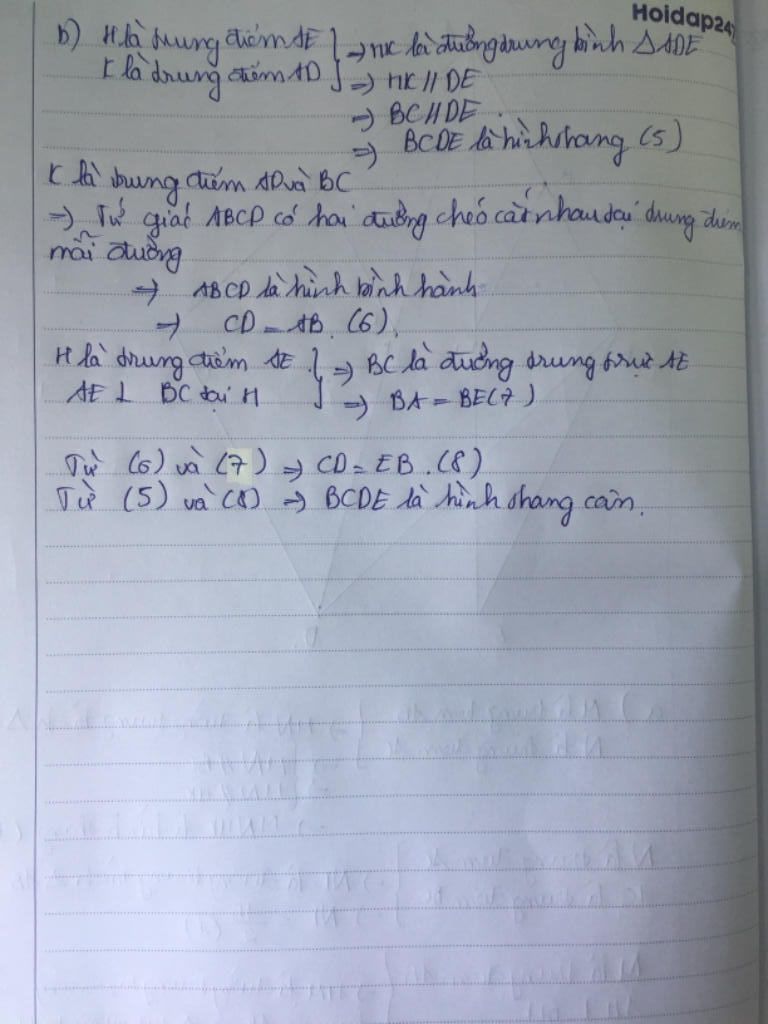 Hoidap247
b) H là trung điểm AE } => HK là đường trung bình △ADE
K là trung điểm AD } => HK // DE
=> BC // DE.
=> BCDE là hình thang (5)
K là trung điểm AD và BC
=> Tứ giác ABCD có hai đường chéo cắt nhau tại trung điểm
mỗi đường
=> ABCD là hình bình hành
=> CD = AB. (6).
H là trung điểm AE } => BC là đường trung trực AE
AE ⊥ BC tại H } => BA = BE (7)
Từ (6) và (7) => CD = EB. (8)
Từ (5) và (8) => BCDE là hình thang cân.